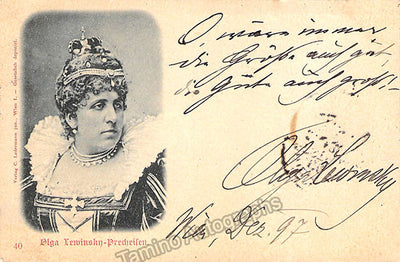 O, wäre immer
die Größe auch gut,
die Güte auch groß! -
Olga Lewinsky
Wien, Dez. 97
Verlag C. Ledermann jun., Wien I. — Gesetzlich deponirt.
40 Olga Lewinsky-Precheisen
Tamino Autographs